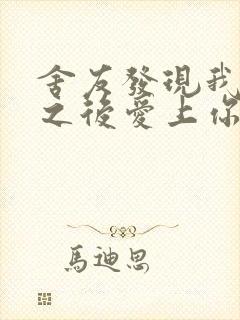 舍友發現我
之後愛上你
馬迪恩